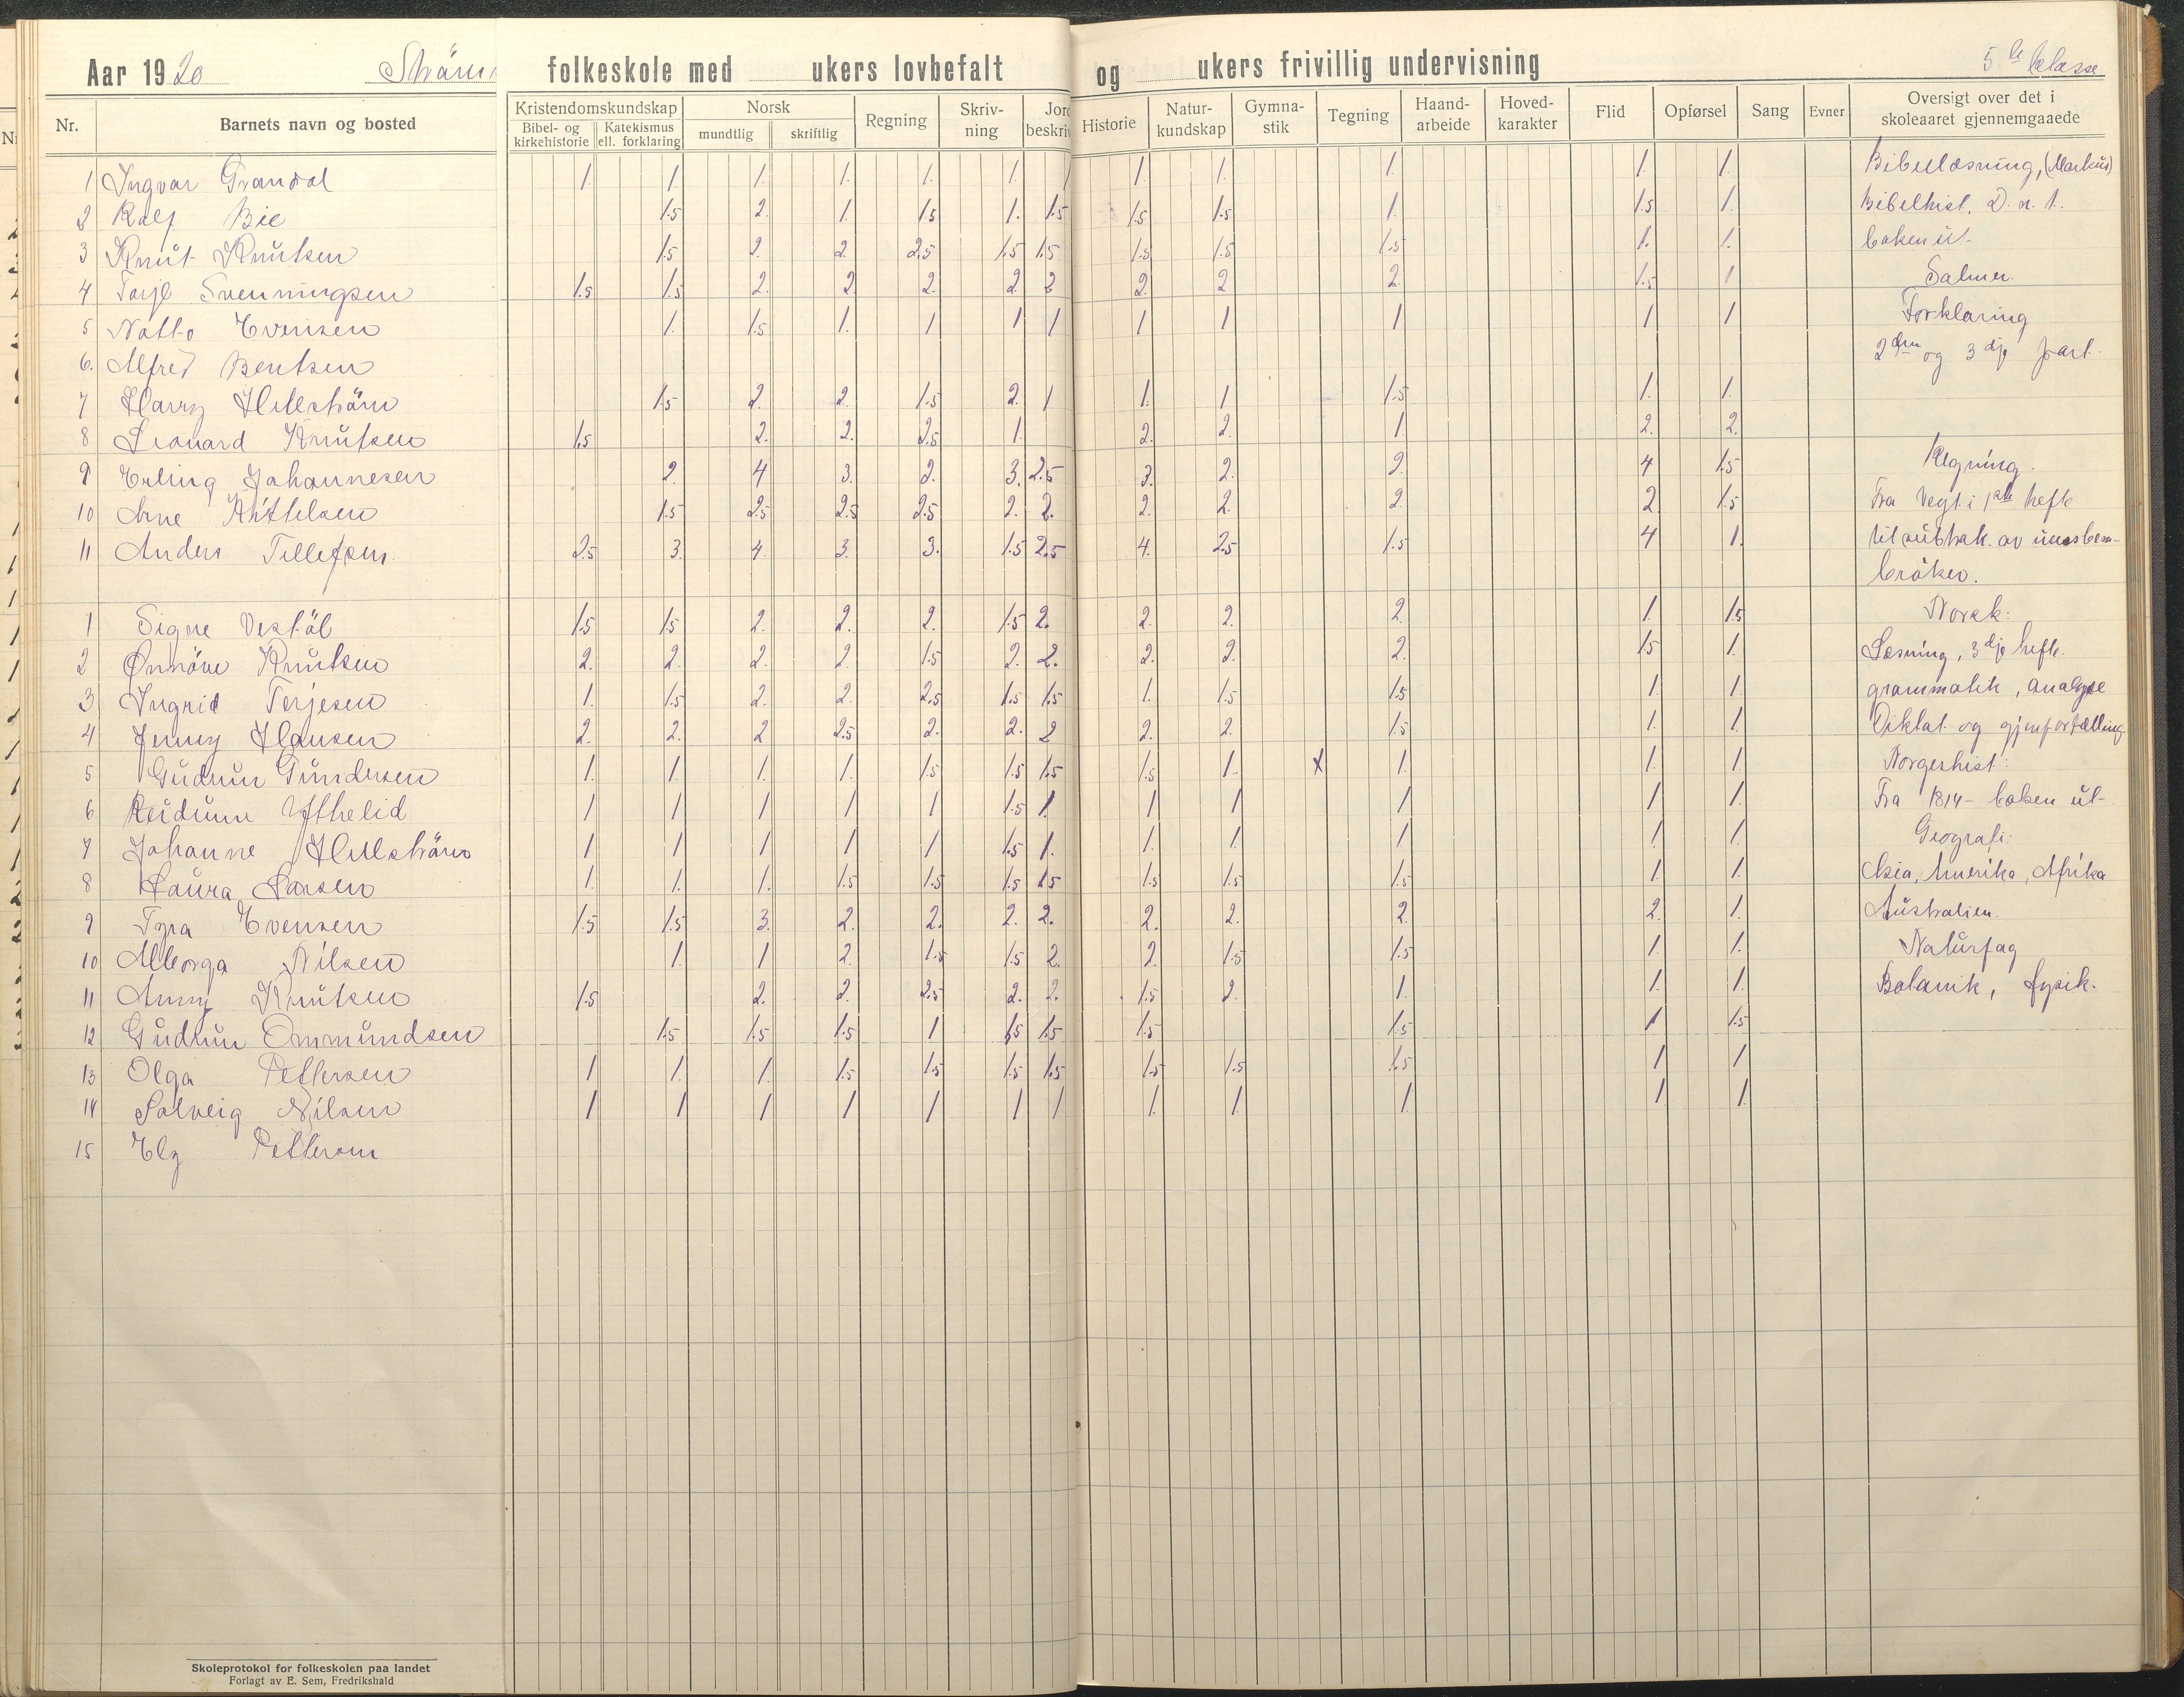 Aar 1920 Strøm folkeskole med ukers lovbefalt og ukers frivillig undervisning 5te klasse
Nr. Barnets navn og bosted Kristendomskundskap Norsk Regning Skriv-ning Jord beskriv Historie Natur-kundskap Gymna-stik Tegning Haand-arbeide Hoved-karakter Flid Opførsel Sang Evner Oversigt over det i skoleaaret gjennemgaaede
Bibel- og kirkehistorie Katekismus ell. forklaring mundtlig skriftlig
1 Ingvar Grandal 1. 1. 1. 1. 1. 1. 1 1. 1. 1. 1. 1. Bibellæsning, (Markus)
2 Ralf Bie 1.5 2. 1. 1.5 1. 1.5 1.5 1.5 1. 1.5 1. Bibelhist. D. n. t.
3 Knut Knutsen 1.5 2. 2. 2.5 1.5 1.5 1.5 1.5 1.5 1. 1. boken ut.
4 Torje Svenningsen 1.5 1.5 2. 2 2. 2 2 2. 2 2. 1.5 1 Salmer.
5 Natto Evensen 1. 1.5 1. 1 1 1 1 1 1 1 1 Forklaring
6. Alfred Bentsen 2den og 3dje part.
7 Harry Hellstrøm 1.5 2. 2. 1.5 2. 1 1. 1 1.5 1. 1.
8 Leonard Knutsen 1.5 2. 2. 2.5 1. 2. 2. 1. 2. 2.
9 Erling Johannesen 2. 4 3. 2. 3. 2.5 3. 2. 2. 4 1.5 Regning.
10 Arne Kittelsen 1.5 2.5 2.5 2.5 2. 2. 2. 2. 2. 2 1.5 Fra Vegt i 1ste hefte
11 Anders Tellefsen. 2.5 3. 4. 3. 3. 1.5 2.5 4. 2.5 1.5 4 1. til subtrak. av
brøker.
1 Signe Vestøl 1.5 1.5 2. 2. 2. 1.5 2. 2. 2. 2. 1. 1.5 Norsk:
2 Knutsen 2. 2. 2. 2. 1.5 2. 2. 2. 2. 2. 1.5 1. Læsning, 3dje hefte.
3 Ingrid Terjesen 1. 1.5 2. 2. 2.5 1.5 1.5 1. 1.5 1.5 1. 1. grammatik, analyse
4 Jenny Hansen 2. 2. 2 2.5 2. 2. 2 2. 2. 1.5 1. 1. Diktat og gjenfortælling
5 Gudrun Gundersen 1. 1. 1. 1. 1.5 1.5 1.5 1.5 1. x 1. 1. 1. Norgeshist:
6 Reidunn Ufthelid 1 1 1 1 1 1.5 1. 1 1 1 1 1. Fra 1814 - boken ut-
7 Johanne Hellstrøm 1 1 1 1 1 1.5 1. 1. 1. 1 1. 1. Geografi:
8 Laura Larsen 1. 1. 1. 1.5 1.5 1.5 1.5 1.5 1.5 1.5 1. 1. Asia, Amerika, Afrika
9 Tyra Evensen 1.5 1.5 3. 2. 2. 2. 2. 2. 2. 2. 2. 1. Australien.
10 Alborga Nilsen 1. 1 2. 1.5 1.5 2. 2. 1.5 1.5 1. 1. Naturfag
11 Anny Knutsen 1.5 2. 2. 2.5 2. 2. 1.5 2. 1. 1. 1. Botanik, fysik.
12 Gudrun Ommundsen 1.5 1.5 1.5 1 1.5 1.5 1.5 1.5 1 1.5
13 Olga Pettersen 1 1. 1. 1.5 1.5 1.5 1.5 1.5 1.5 1.5 1 1
14 Solveig Nilsen 1 1 1 1 1 1 1 1. 1. 1. 1 1.
15 Ely Pettersen
Skoleprotokol for folkeskolen paa landet
Forlagt av E. Sem, Fredrikshald